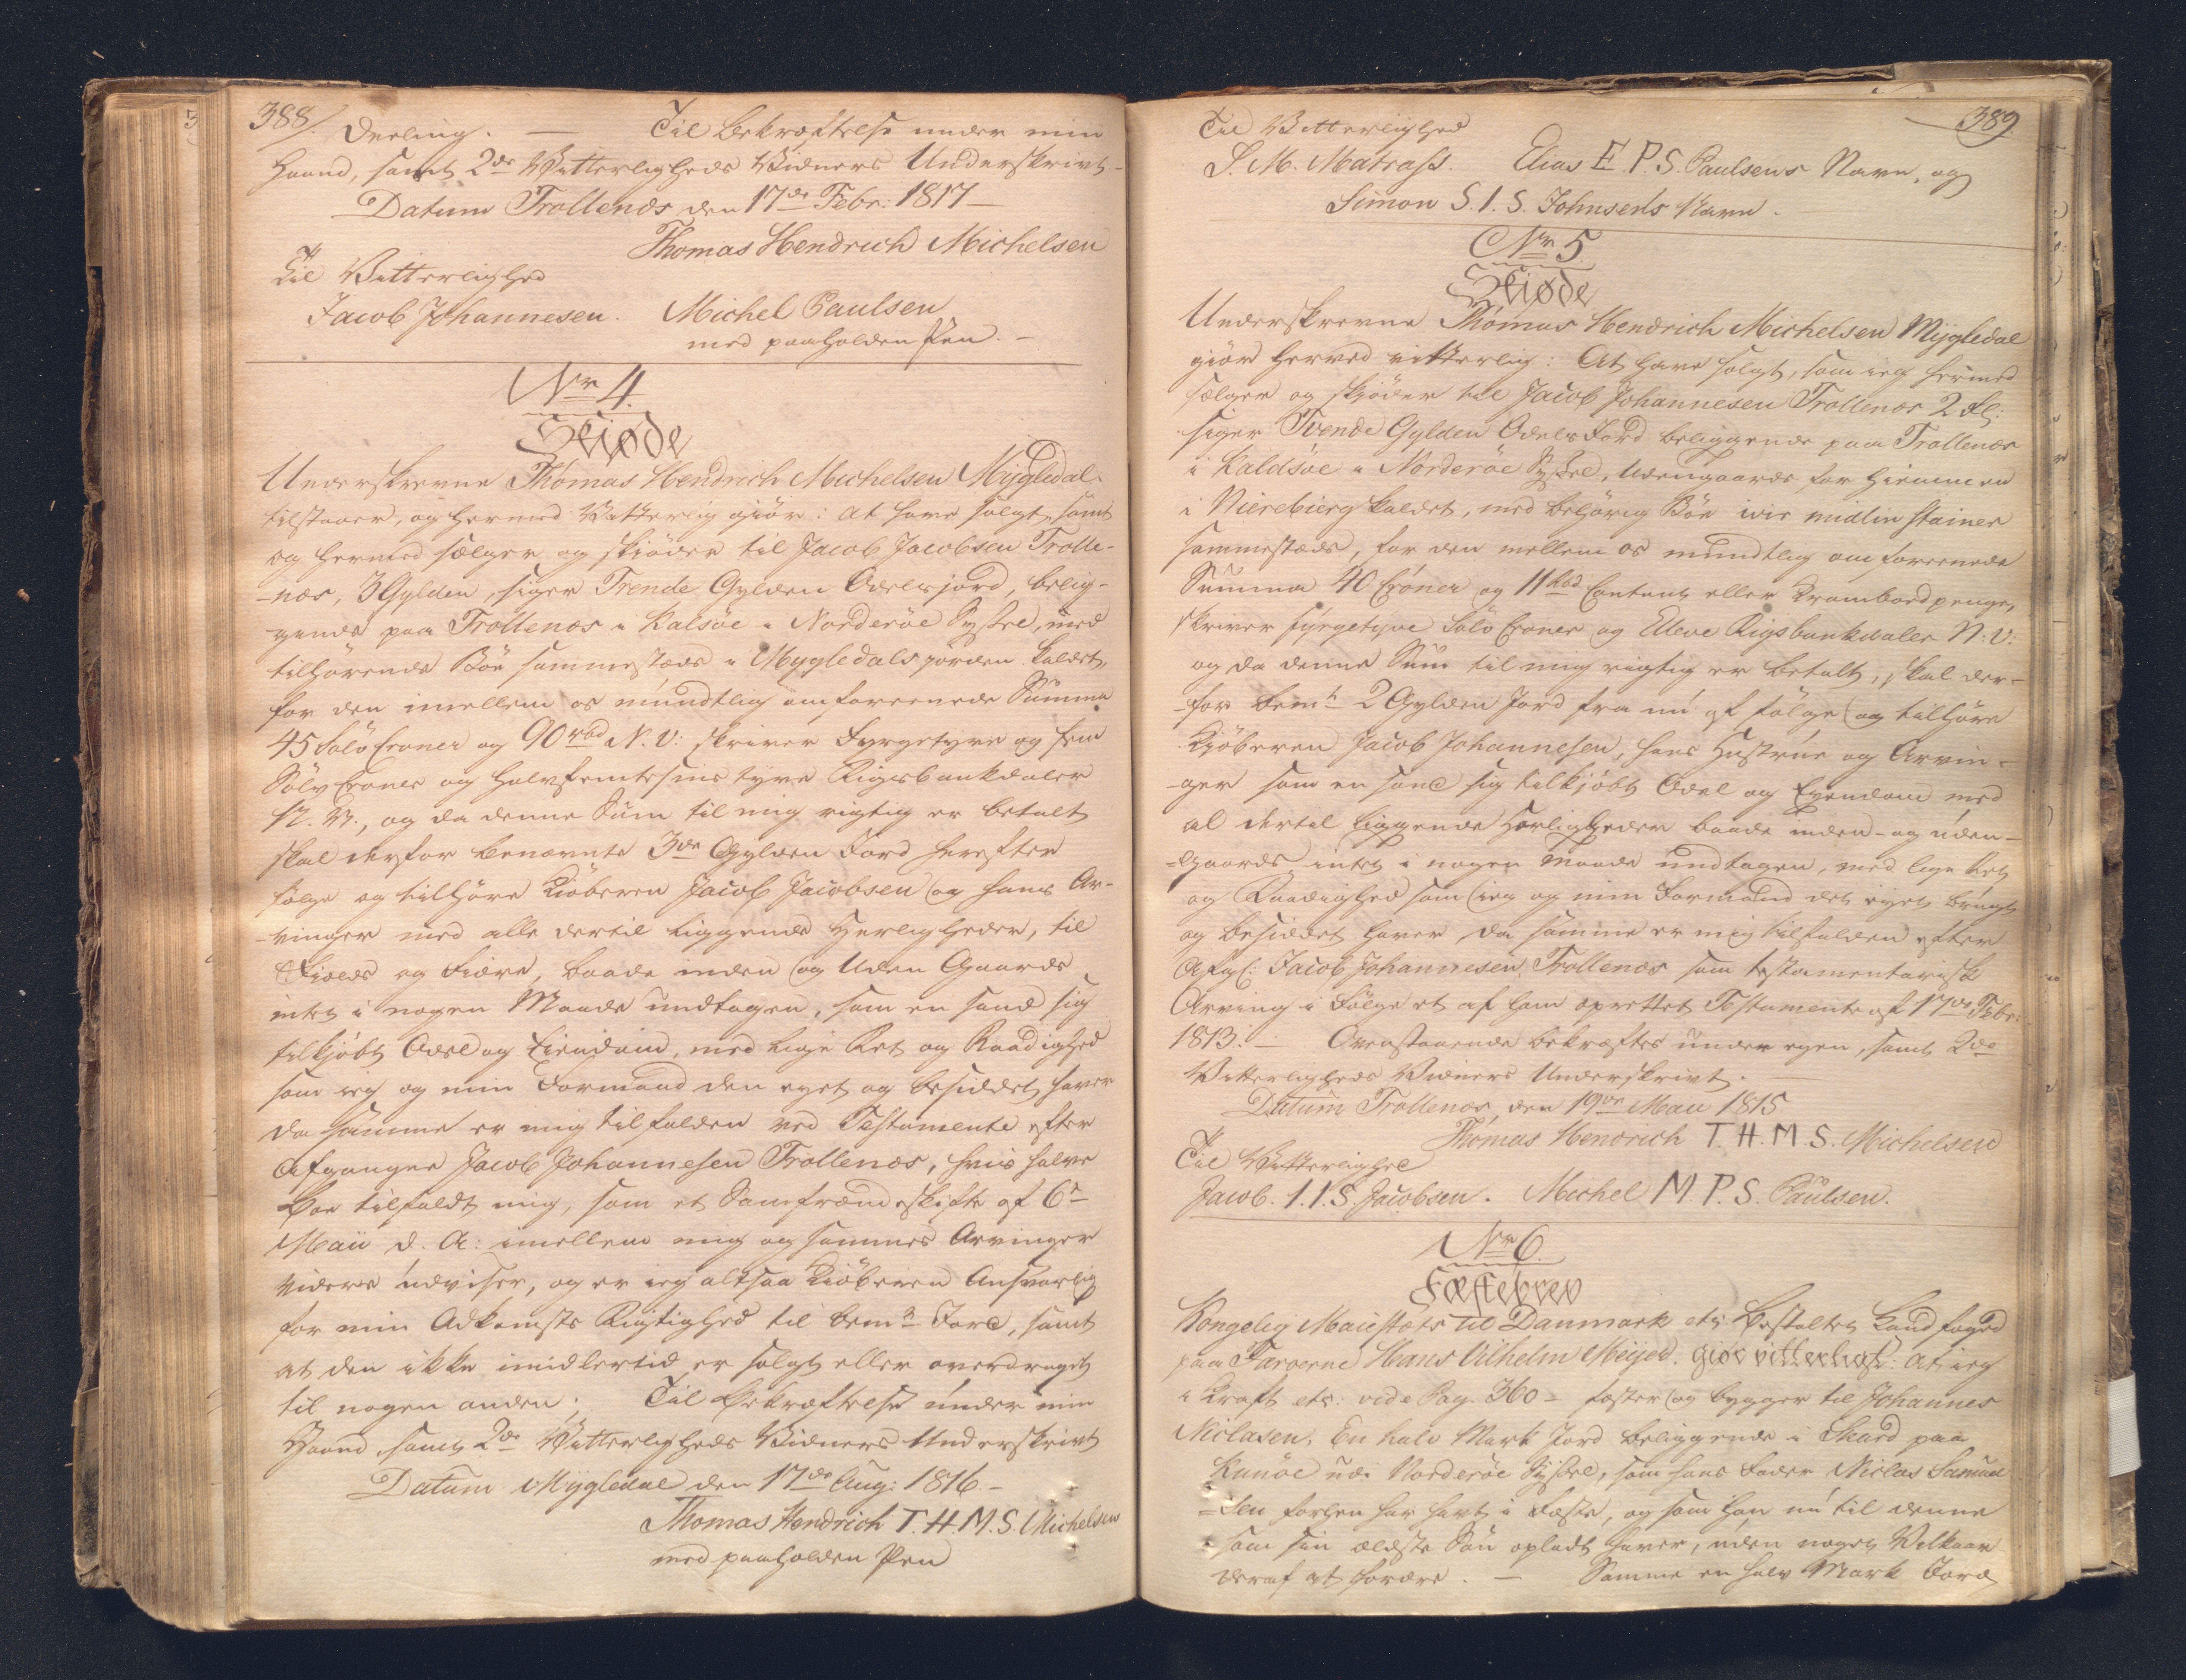 388/.
deeling. — Til Bekræftelse under min
Haand, samt 2de Vitterligheds Vidners Underskrivt-
Datum Trollenæs den 17de Febr: 1817 —
Thomas Hendrich Michelsen
Til Vitterlighed
Jacob Johannesen. Michel Paulsen
med paaholden Pen. —
Nr 4.
Skiøde
Underskrevne Thomas Hendrich Michelsen Mygledal.
tilstaaer, og hermed Vitterlig giør: at have solgt, samt
og hermed sælger og skiøder til Jacob Jacobsen Trolle-
-næs, 3 Gylden, siger Trende Gylden Odelsjord, belig-
gende paa Trollenæs i Kalsøe i Norderøe Syssel, med
tilhørende Bøe sammestæds i Mygledals jorden kaldet,
for den imellem os mündtlig omforeenede Summa
45 Sølv Croner og 90 rbd N. V: skriver Fyrgetyve og fem
Sølv Croner og halvfemtesinds tyve Rigsbankdaler
N. V., og da denne Sum til mig rigtig er betalt
skal derfor benævnte 3de Gylden Jord herefter
følge og tilhøre Kiøberen Jacob Jacobsen og hans Ar-
-vinger med alle dertil liggende Herligheder, til
Fields og Fiære, baade inden og Uden Gaards
intet i nogen Maade undtagen, som en sand sig
tilkjøbt Odel og Eiendom, med lige Ret og Raadighed
som ieg og min Formand den eyet og besiddet haver
da samme er mig tilfalden ved Testamente efter
Afgangne Jacob Johannesen Trollenæs, hvis halve
Boe tilfaldt mig, som et Samfrændeskifte af 6te
Maii d. A: imellem mig og sammes Arvinger
videre udviser, og er ieg altsaa Kiøberen Ansvarlig
for min Adkomsts Rigtighed til bemte Jord, samt
at den ikke imidlertid er solgt eller overdraget
til nogen anden; Til Bekræftelse under min
Haand, samt 2de Vitterligheds Vidners Underskrivt
Datum Mygledal den 17de Aug: 1816. —
Thomas Hendrich T. H. M. S. Michelsen
med paaholden Pen
389
Til Vitterlighed
S. M. Matrass. Elias E. P. S. Paulsens Navn, og
Simon S. I. S. Johnsens Navn.
Nr 5
Skiøde
Underskrevne Thomas Hendrich Michelsen Mygledal
giør herved vitterlig: At have solgt, som ieg hermed
sælger og skjøder til Jacob Johannesen Trollenæs 2 Gl:
siger Tvende Gylden Odels Jord beliggende paa Trollenæs
i Kaldsøe i Norderøe Syssel, Udengaards for Hiemmen
i Nierebierg kaldet, med behørig Bøe ivir mudlin stainer
sammestæds, for den mellem os mundtlig omforeenede
Summa 40 Croner og 11 rbd Contant eller Krambord penge,
skriver fyrgetyve Sølv Croner og Elleve Rigsbankdaler N: V:
og da denne Sum til mig rigtig er betalt, skal der-
-for bemte 2 Gylden Jord fra nu af følge og tilhøre
Kjøberen Jacob Johannesen, hans Hustrue og Arvin-
-ger som en sand sig tilkjøbt Odel og Eyendom med
al dertil liggende Herligheder baade inden- og uden-
-Gaards intet i nogen Maade undtagen, med lige Ret
og Raadighed som ieg og min Formand det eyet, brugt
og besiddet haver da samme er mig tilfalden efter
Afgl: Jacob Johannesen Trollenæs som testamentarisk
Arving i Følge et af ham oprettet Testamente af 17de Febr:
1813. — Ovenstaaende bekræftes under egen, samt 2de
Vitterligheds Vidners Underskrivt.
Datum Trollenæs, den 19de Maii 1815
Thomas Hendrich T. H. M. S. Michelsen
Til Vitterlighed
Jacob. I. I. S. Jacobsen. Michel M. P. S. Paulsen.
Nr 6.
Fæstebrev
Kongelig Maiestæts til Danmark etc Bestalter Landfoged
paa Færøerne Hans Wilhelm Meyer. giør vitterligt: at ieg
i Kraft etc: vide Pag. 360 - fæster og bygger til Johannes
Niclasen, En halv Mark Jord beliggende i Skard paa
Kunøe udi Norderøe Syssel, som hans Fader Niclas Samuel
-sen forhen har havt i Fæste, og som han nu til denne
som sin ældste Søn opladt haver, uden noget Vilkaar
deraf at fordre. — Samme en halv Mark Jord